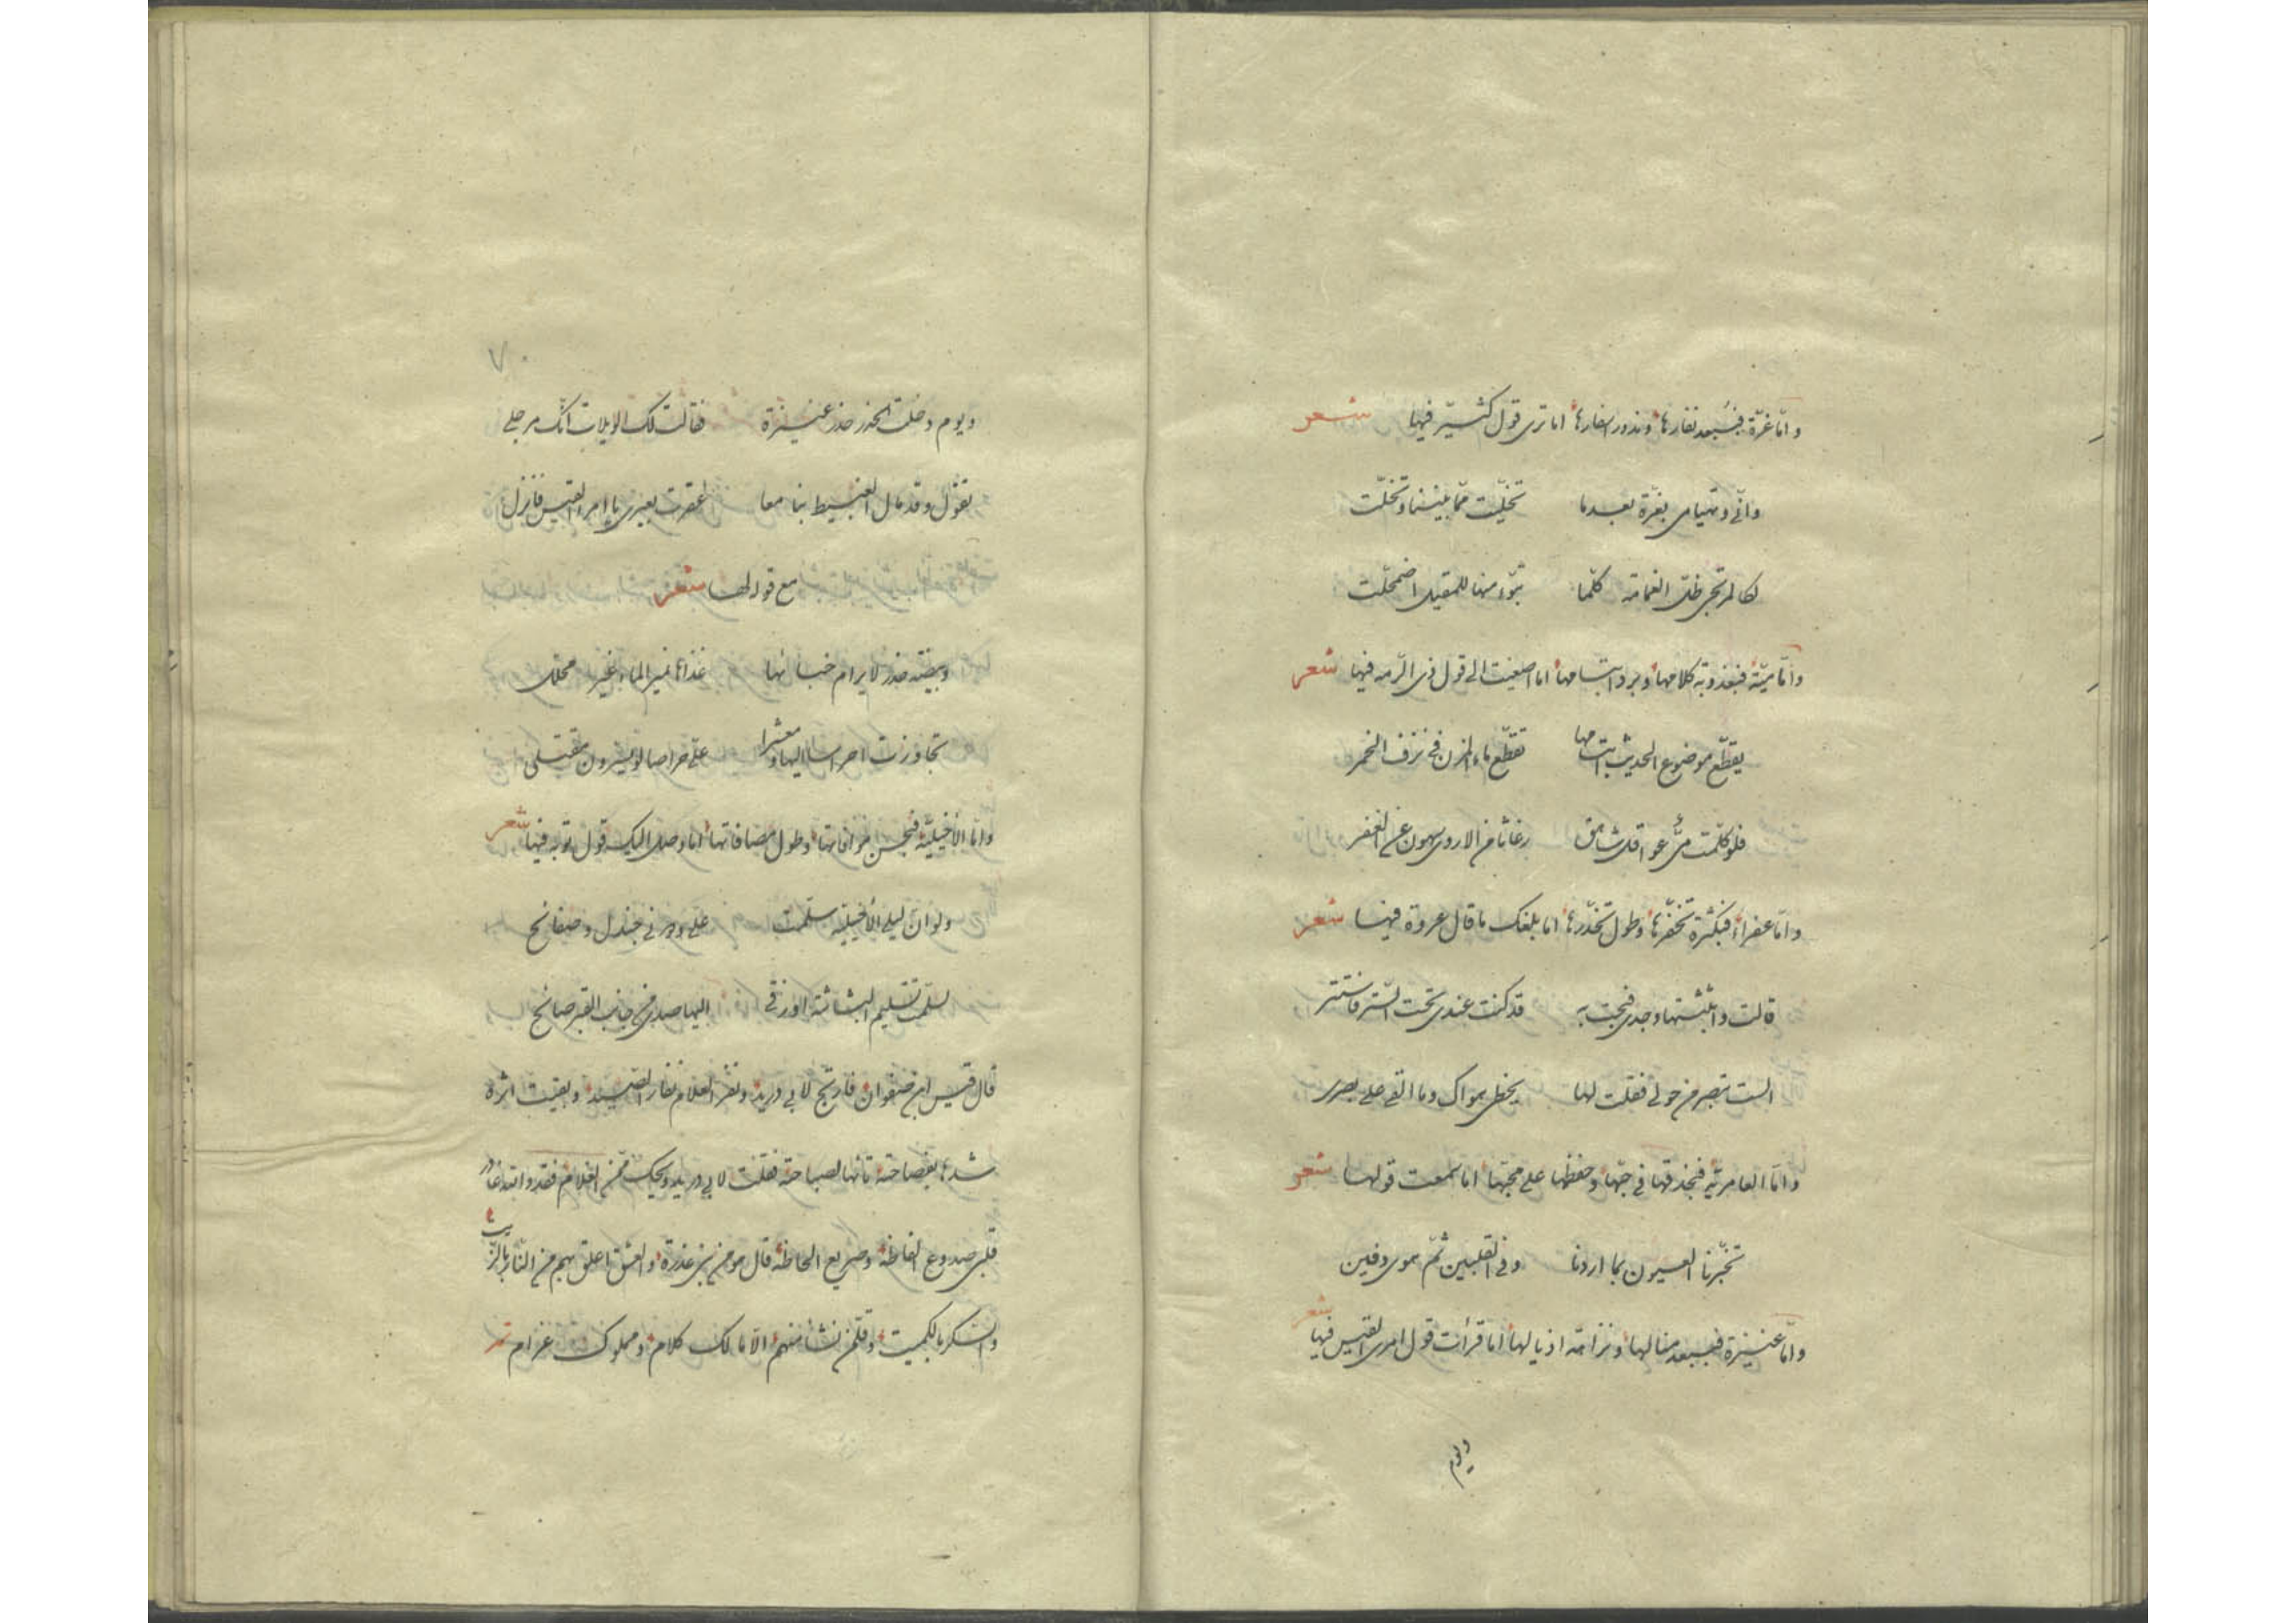 وامّا عزّة فببعد نفارها وندور اسفارها اما ترى قول كثيّر فيها شعر
وانّي وتهيامي بعزّة بعدما تخلّيت ممّا بيننا وتخلّت
لكالمرتجى ظلّ الغمامة كلّما تبوّء منها للمقيل اضمحلّت
وامّا ميّة فبعذوبة كلامها وبرد ابتسامها اما اصغيت الى قول ذى الرّمه فيها شعر
يقطّع موضوع الحديث ابتسامها تقطّع ماء المزن في نزف الخمر
فلو كلّمت
وامّا عفراء فبكثرة تخفّرها وطول تخدّرها اما بلغك ما قال عروة فيها شعر
قالت وابثثتها وجدى فبحت به قد كنت عندى تحت السّتر فاستتر
الست تبصر من حولي فقلت لها يغطى هواك وما القى على بصرى
وامّا العامريّه فبحذقها في حبّها وحفظها على محبّها اما سمعت قولها شعر
تخبّرنا العيون بما اردنا وفي القلبين ثمّ هوى دفين
وامّا عنيزة فببعد منالها ونزاهة اذيالها اما قرأت قول امرى القيس فيها شعر
ويوم
٧٠
ويوم دخلت الخدر خدر عنيزة فقالت لك الويلات انّك مرجلى
تقول وقد مال الغبيط بنا معا عقرت بعيرى يا امرء القيس فانزل
مع قوله لها شعر
وبيضة خدر لا يرام خبائها غذاها نمير الماء غير محلّل
تجاوزت احراسا اليها ومعشرا علىّ حراصا لو يسّرون مقتلى
وامّا الأخيليّة فبحسن موافاتها وطول مصافاتها اما وصل اليك قول توبه فيها شعر
ولو انّ ليلى الأخيليّة سلّمت علىّ ودوني جندل وصفائح
لسلّمت تسليم البشاشة او زقى اليها صدى من جانب القبر صائح
قال قيس ابن صفوان فارتجّ لابي دريد ونفر الغلام نفار الصّيد وبقيت اثره
شدها بفصاحته تائها لصباحته فقلت لابي دريد ويحك ممّن الغلام فقد وابتدغادر
قلبى صدوع الفاظه وصريع الحاظه قال هو من بنى عذرة والعشق اعلق بهم من النّار بالزّيت
والسّكر بالكميت وقلّ من نشأ منهم الّا مالك كلام ومملوك غرام